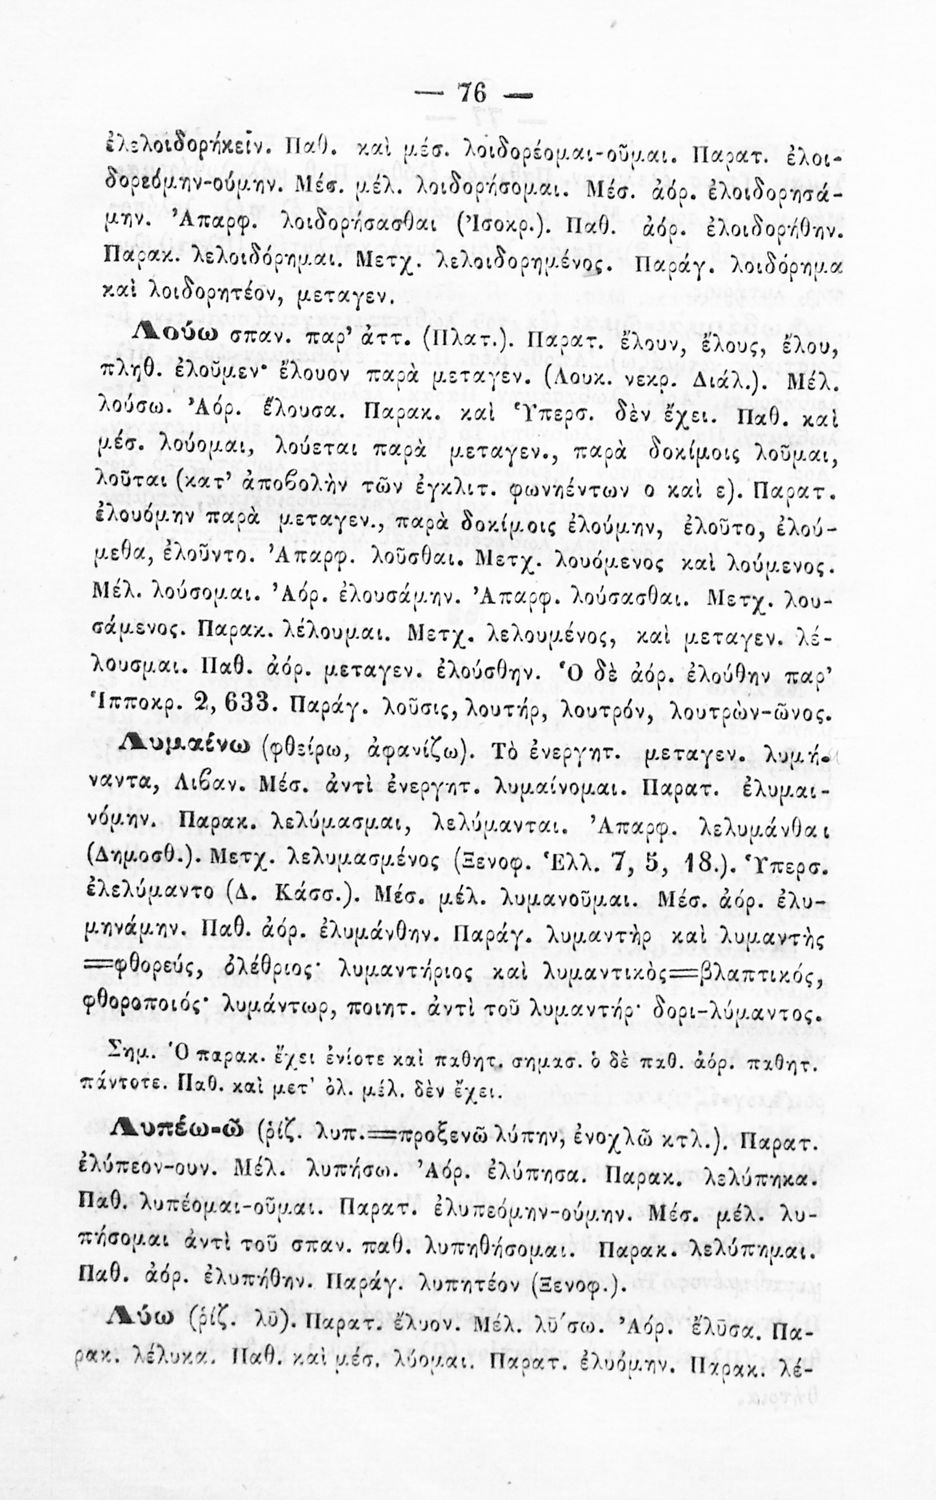 — 76 —
ἐλελοιδορήκειν. Παθ. καὶ μέσ. λοιδορέομαι-οῦμαι. Παρατ. ἐλοι-
δορεόμην-ούμην. Μέσ. μέλ. λοιδορήσομαι. Μέσ. ἀόρ. ἐλοιδορησά-
μην. Ἀπαρφ. λοιδορήσασθαι (Ἰσοκρ.). Παθ. ἀόρ. ἐλοιδορήθην.
Παρακ. λελοιδόρημαι. Μετχ. λελοιδορημένος. Παράγ. λοιδόρημα
καὶ λοιδορητέον, μεταγεν.
Λούω σπαν. παρ’ ἀττ. (Πλατ.). Παρατ. ἔλουν, ἔλους, ἔλου,
πληθ. ἐλοῦμεν· ἔλουον παρὰ μεταγεν. (Λουκ. νεκρ. Διάλ.). Μέλ.
λούσω. Ἀόρ. ἔλουσα. Παρακ. καὶ Ὑπερσ. δὲν ἔχει. Παθ. καὶ
μέσ. λούομαι, λούεται παρὰ μεταγεν., παρὰ δοκίμοις λοῦμαι,
λοῦται (κατ’ ἀποβολὴν τῶν ἐγκλιτ. φωνηέντων ο καὶ ε). Παρατ.
ἐλουόμην παρὰ μεταγεν., παρὰ δοκίμοις ἐλούμην, ἐλοῦτο, ἐλού-
μεθα, ἐλοῦντο. Ἀπαρφ. λοῦσθαι. Μετχ. λουόμενος καὶ λούμενος.
Μέλ. λούσομαι. Ἀόρ. ἐλουσάμην. Ἀπαρφ. λούσασθαι. Μετχ. λου-
σάμενος. Παρακ. λέλουμαι. Μετχ. λελουμένος, καὶ μεταγεν. λέ-
λουσμαι. Παθ. ἀόρ. μεταγεν. ἐλούσθην. Ὁ δὲ ἀόρ. ἐλούθην παρ’
Ἱπποκρ. 2, 633. Παράγ. λοῦσις, λουτήρ, λουτρόν, λουτρὼν-ῶνος.
Λυμαίνω (φθείρω, ἀφανίζω). Τὸ ἐνεργητ. μεταγεν. λυμή-
ναντα, Λιβαν. Μέσ. ἀντὶ ἐνεργητ. λυμαίνομαι. Παρατ. ἐλυμαι-
νόμην. Παρακ. λελύμασμαι, λελύμανται. Ἀπαρφ. λελυμάνθαι
(Δημοσθ.). Μετχ. λελυμασμένος (Ξενοφ. Ἑλλ. 7, 5, 18.). Ὑπερσ.
ἐλελύμαντο (Δ. Κάσσ.). Μέσ. μέλ. λυμανοῦμαι. Μέσ. ἀόρ. ἐλυ-
μηνάμην. Παθ. ἀόρ. ἐλυμάνθην. Παράγ. λυμαντὴρ καὶ λυμαντὴς
=φθορεύς, ὀλέθριος· λυμαντήριος καὶ λυμαντικὸς=βλαπτικός,
φθοροποιός· λυμάντωρ, ποιητ. ἀντὶ τοῦ λυμαντήρ· δορι-λύμαντος.
Σημ. Ὁ παρακ. ἔχει ἐνίοτε καὶ παθητ. σημασ. ὁ δὲ παθ. ἀόρ. παθητ.
πάντοτε. Παθ. καὶ μετ’ ὀλ. μέλ. δὲν ἔχει.
Λυπέω-ῶ (ῥίζ. λυπ.=προξενῶ λύπην, ἐνοχλῶ κτλ.). Παρατ.
ἐλύπεον-ουν. Μέλ. λυπήσω. Ἀόρ. ἐλύπησα. Παρακ. λελύπηκα.
Παθ. λυπέομαι-οῦμαι. Παρατ. ἐλυπεόμην-ούμην. Μέσ. μέλ. λυ-
πήσομαι ἀντὶ τοῦ σπαν. παθ. λυπηθήσομαι. Παρακ. λελύπημαι.
Παθ. ἀόρ. ἐλυπήθην. Παράγ. λυπητέον (Ξενοφ.).
Λύω (ῥίζ. λῡ). Παρατ. ἔλυον. Μέλ. λῡ́σω. Ἀόρ. ἔλῡσα. Πα-
ρακ. λέλυκα. Παθ. καὶ μέσ. λύομαι. Παρατ. ἐλυόμην. Παρακ. λέ-